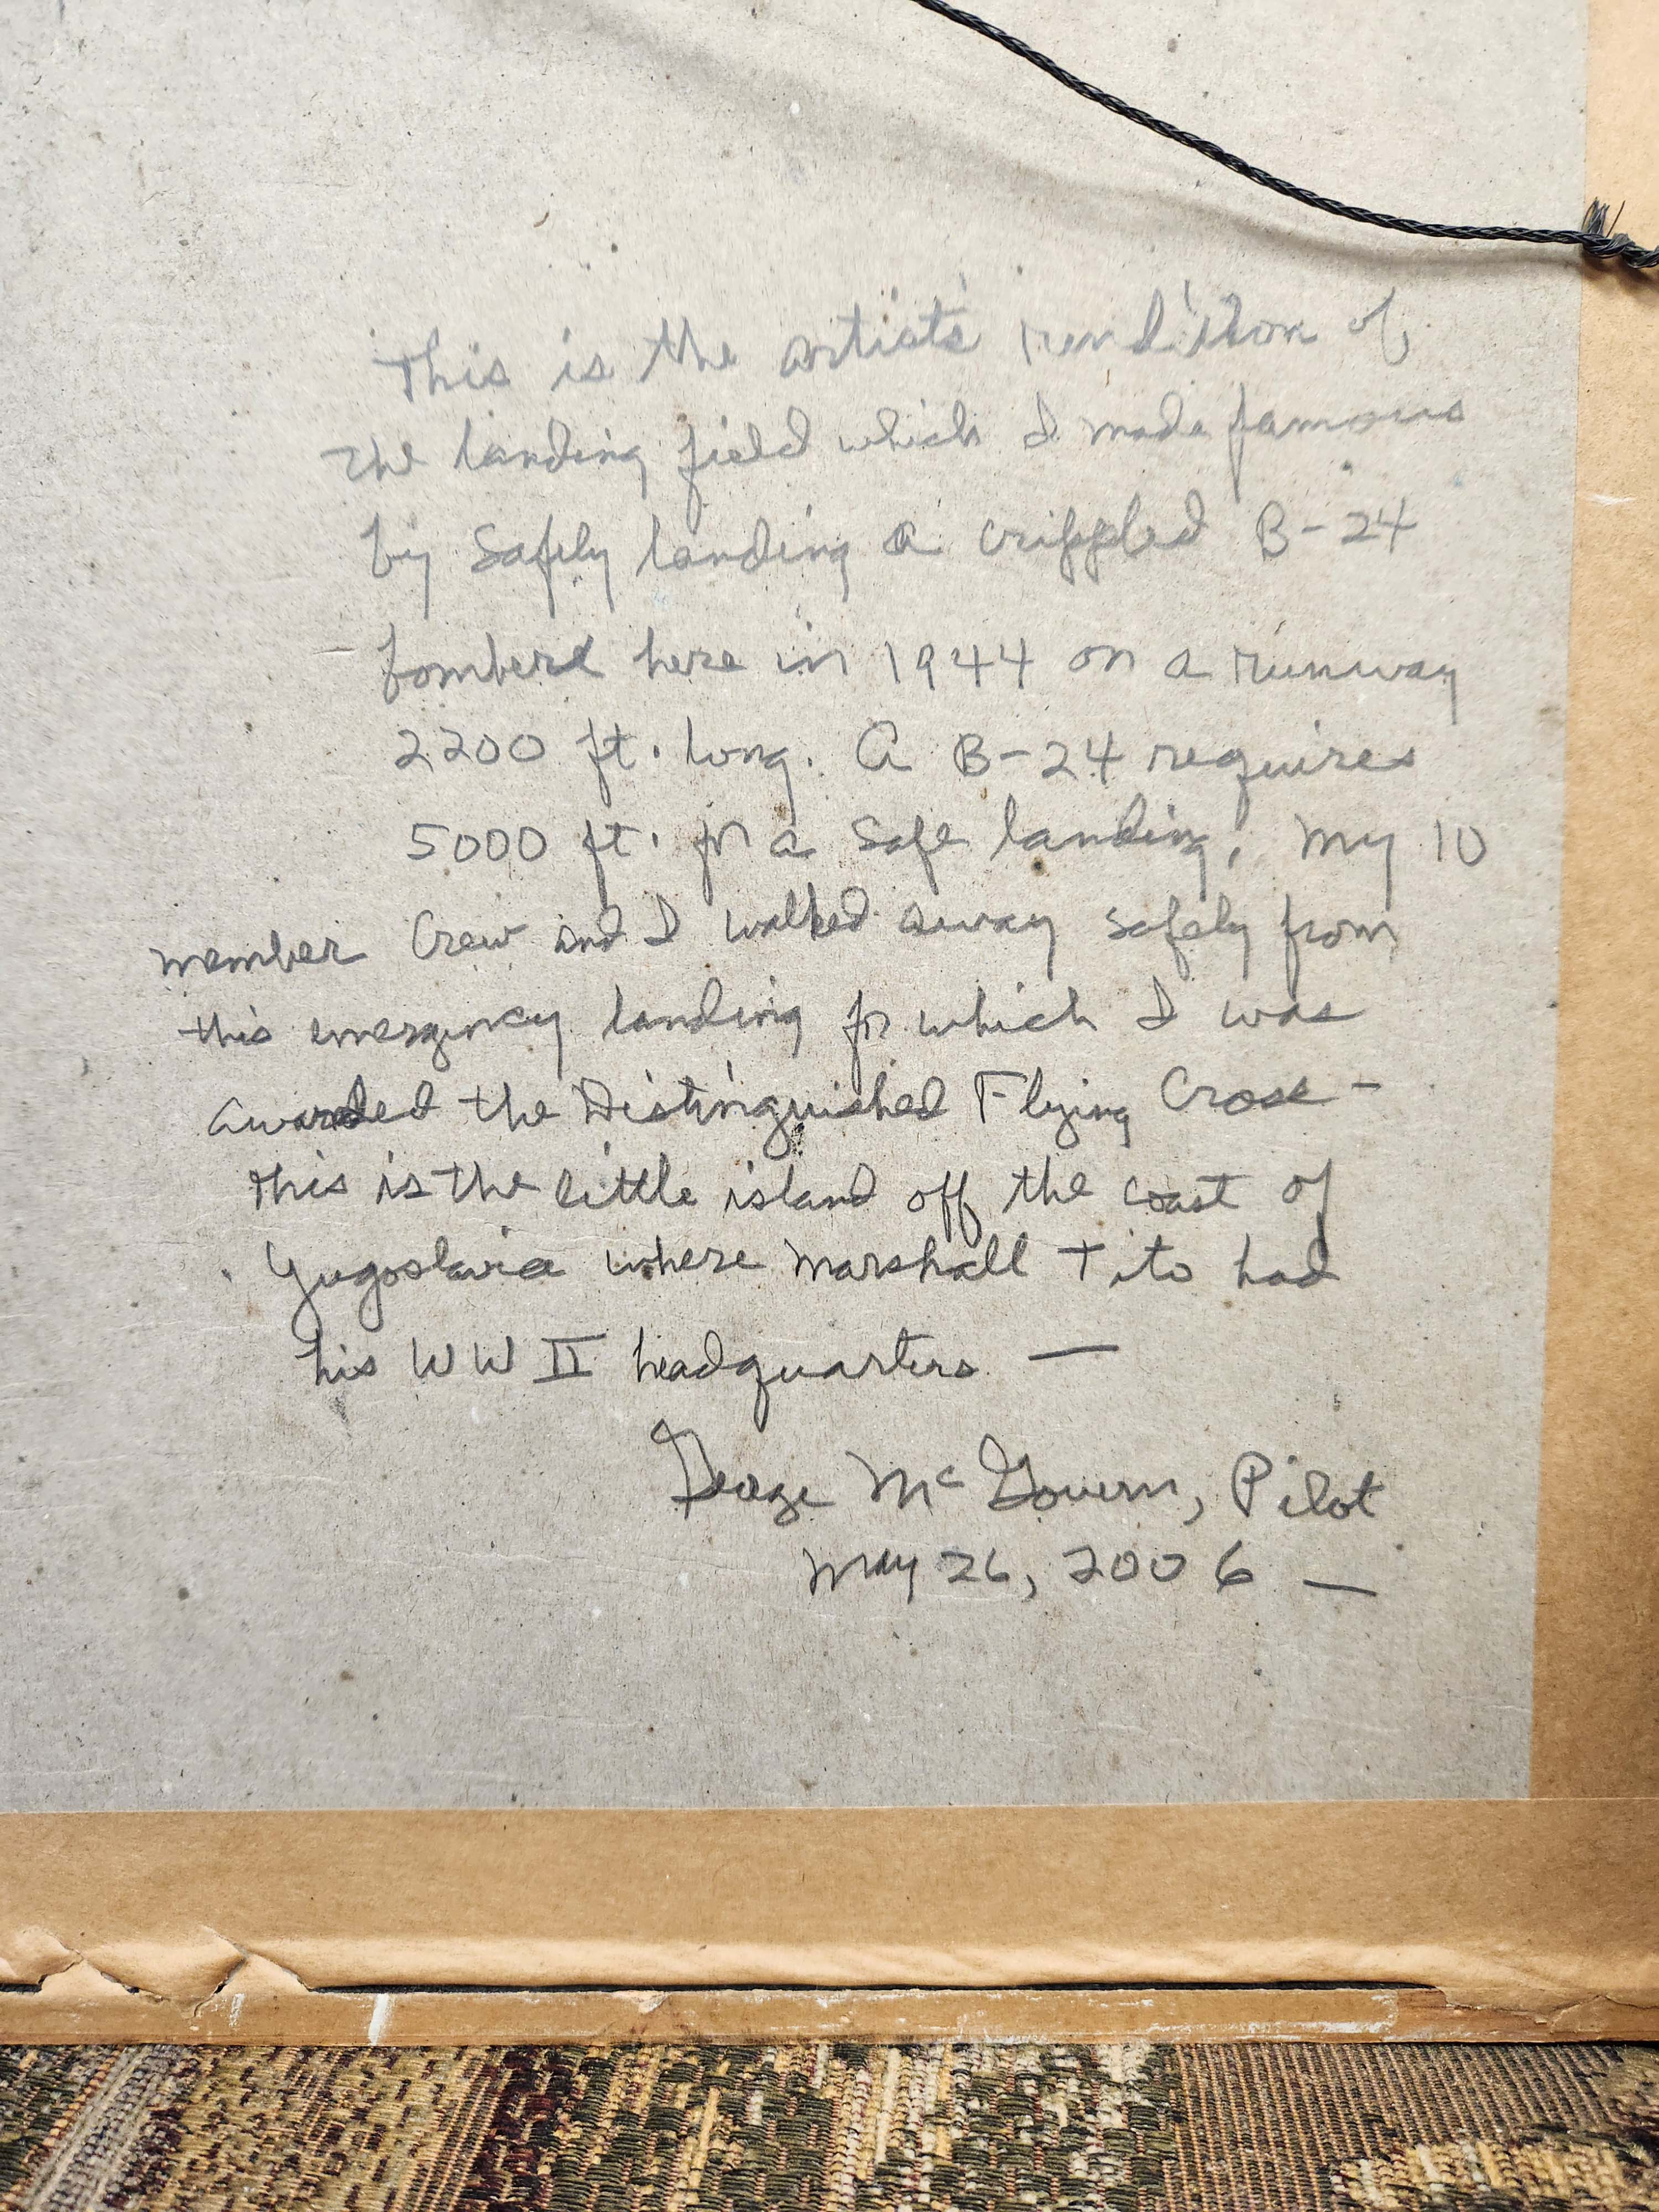 This is the artist's rendition of
the landing field which I made famous
by safely landing a crippled B-24
bomber here in 1944 on a runway
2200 ft. long. A B-24 requires
5000 ft. for a safe landing. My 10
member crew and I walked away safely from
this emergency landing for which I was
awarded the Distinguished Flying Cross –
This is the little island off the coast of
Yugoslavia where Marshall Tito had
his WW II headquarters —
George McGovern, Pilot
May 26, 2006 —